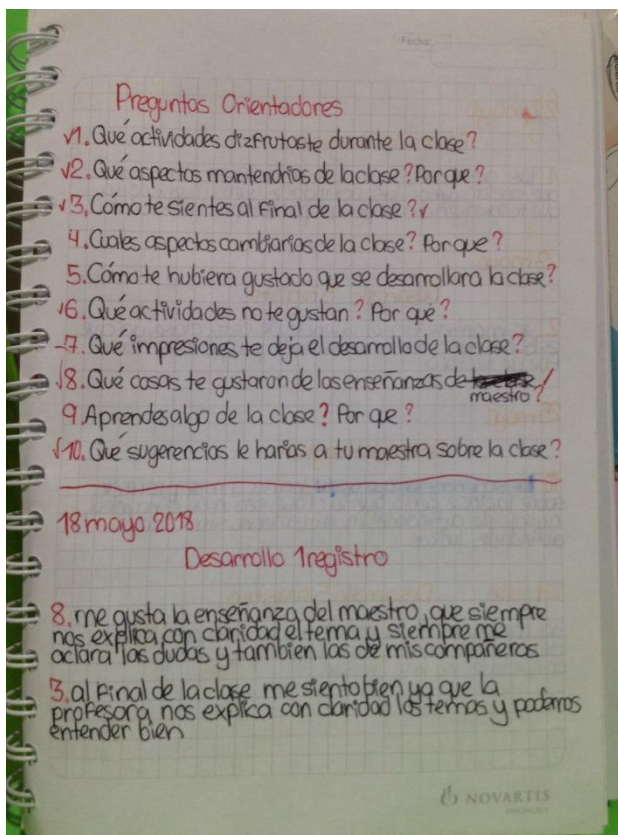 Fecha:
Preguntas Orientadores
√1. Qué actividades dizfrutaste durante la clase?
√2. Qué aspectos mantendrias de la clase? Por que?
√3. Cómo te sientes al Final de la clase? √
4. Cuales aspectos cambiarias de la clase? Por que?
5. Cómo te hubiera gustado que se desarrollara la clase?
√6. Qué actividades no te gustan? Por qué?
-7. Qué impresiones te deja el desarrollo de la clase?
√8. Qué cosas te gustaron de las enseñanzas de
maestro?
9 Aprendes algo de la clase? Por que?
√10. Qué sugerencias le harias a tu maestra sobre la clase?
18 mayo 2018
Desarrollo 1 registro
8. me gusta la enseñanza del maestro, que siempre
nos explica con claridad el tema y siempre me
aclara las dudas y tambien las de mis compañeros
3. al Final de la clase me siento bien ya que la
profesora nos explica con claridad los temas y podemos
entender bien
NOVARTIS